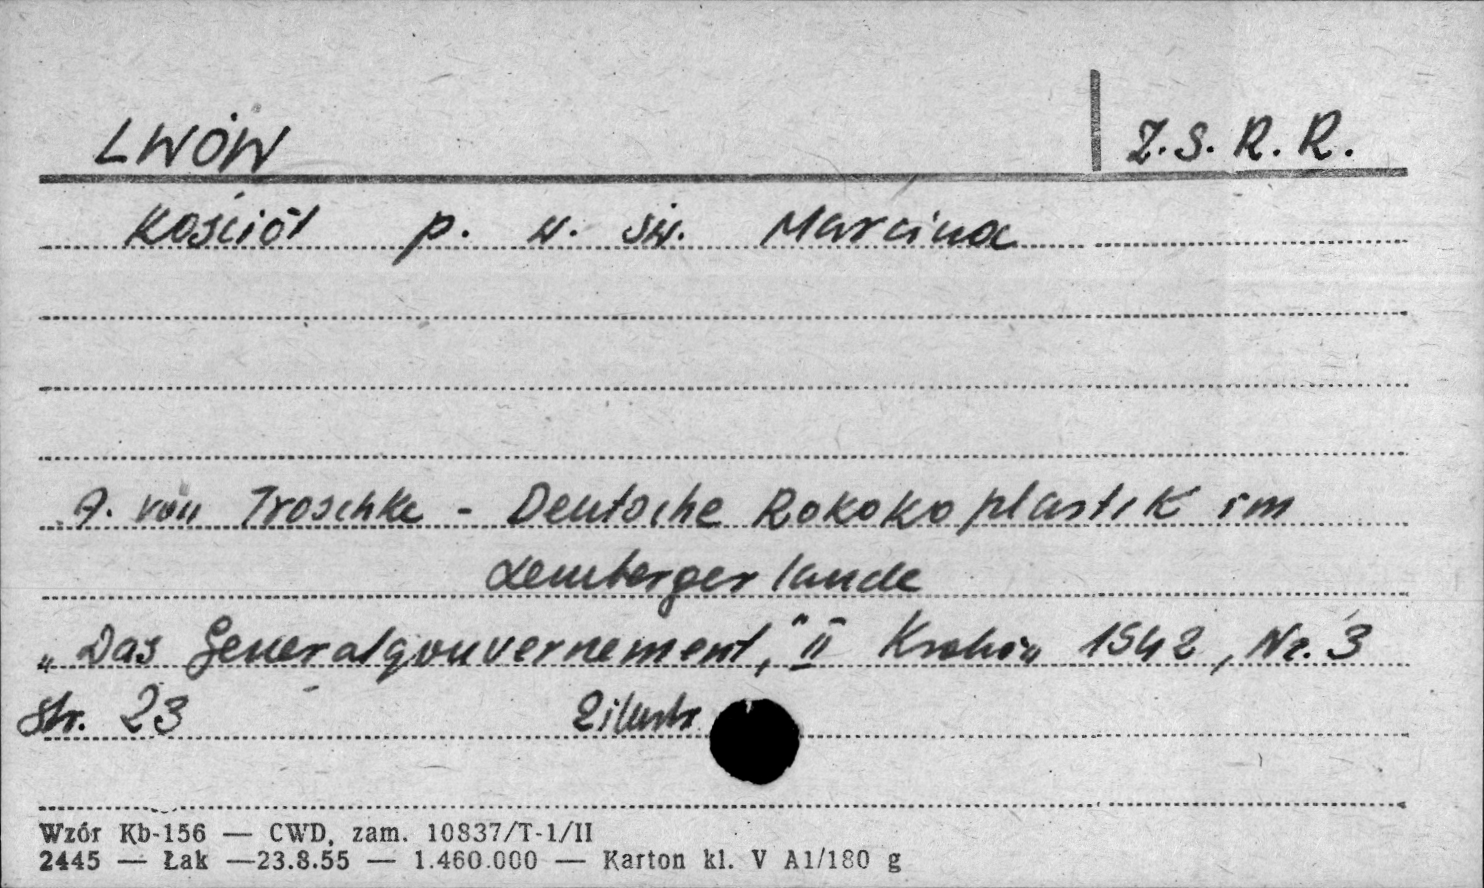 LWÓW
Z.S.R.R.
Kościół p. w. św. Marcina
A. von Troschke - Deutsche Rokokoplastik im
Lemberger lande
„Das Generalgouvernement," II Kraków 1942, Nr. 3
str. 23 2 ilustr.
Wzór Kb-156 — CWD, zam. 10837/T-1/II
2445 — Łak —23.8.55 — 1.460.000 — Karton kl. V A1/180 g